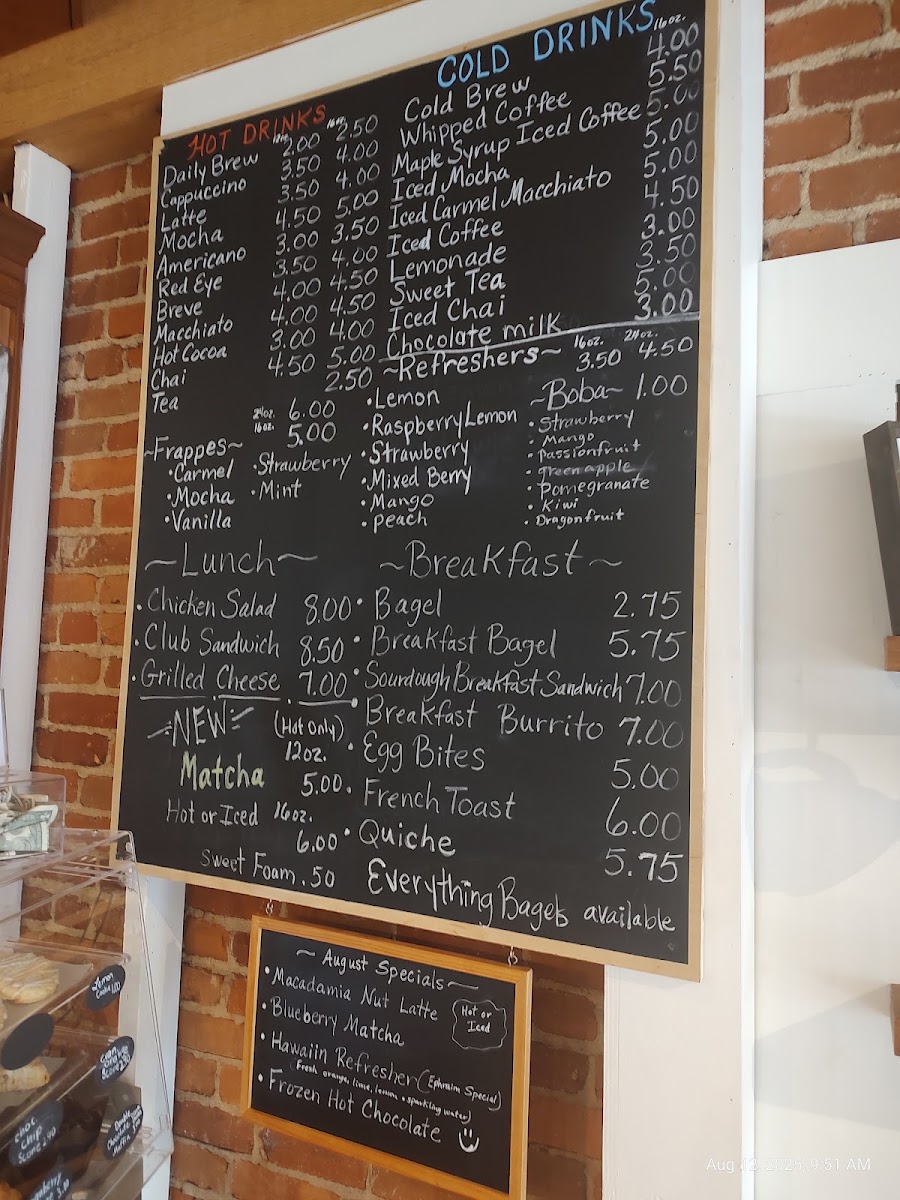 HOT DRINKS
12oz. 16oz.
Daily Brew 2.00 2.50
Cappuccino 3.50 4.00
Latte 3.50 4.00
Mocha 4.50 5.00
Americano 3.00 3.50
Red Eye 3.50 4.00
Breve 4.00 4.50
Macchiato 4.00 4.50
Hot Cocoa 3.00 4.00
Chai 4.50 5.00
Tea 2.50
COLD DRINKS 16oz.
Cold Brew 4.00
Whipped Coffee 5.50
Maple Syrup Iced Coffee 5.00
Iced Mocha 5.00
Iced Carmel Macchiato 5.00
Iced Coffee 4.50
Lemonade 3.00
Sweet Tea 3.50
Iced Chai 5.00
Chocolate milk 3.00
~Frappes~
24oz. 6.00
16oz. 5.00
•Carmel
•Mocha
•Vanilla
•Strawberry
•Mint
~Refreshers~ 16oz. 3.50 24oz. 4.50
•Lemon
•Raspberry Lemon
•Strawberry
•Mixed Berry
•Mango
•Peach
~Boba~ 1.00
•Strawberry
•Mango
•Passionfruit
•green apple
•Pomegranate
•Kiwi
•Dragonfruit
~Lunch~
•Chicken Salad 8.00
•Club Sandwich 8.50
•Grilled Cheese 7.00
NEW (Hot Only)
12oz.
Matcha 5.00
Hot or Iced 16oz.
6.00
Sweet Foam .50
~Breakfast~
•Bagel 2.75
•Breakfast Bagel 5.75
•Sourdough Breakfast Sandwich 7.00
•Breakfast Burrito 7.00
•Egg Bites 5.00
•French Toast 6.00
•Quiche 5.75
Everything Bagels available
~August Specials~
•Macadamia Nut Latte
Hot or
Iced
•Blueberry Matcha
•Hawaiin Refresher (Ephraim Special)
(Fresh orange, lime, lemon, + sparkling water)
•Frozen Hot Chocolate
Lemon
Cookie
choc
chip
Double
Chocolate
Aug 12, 2025, 9:51 AM